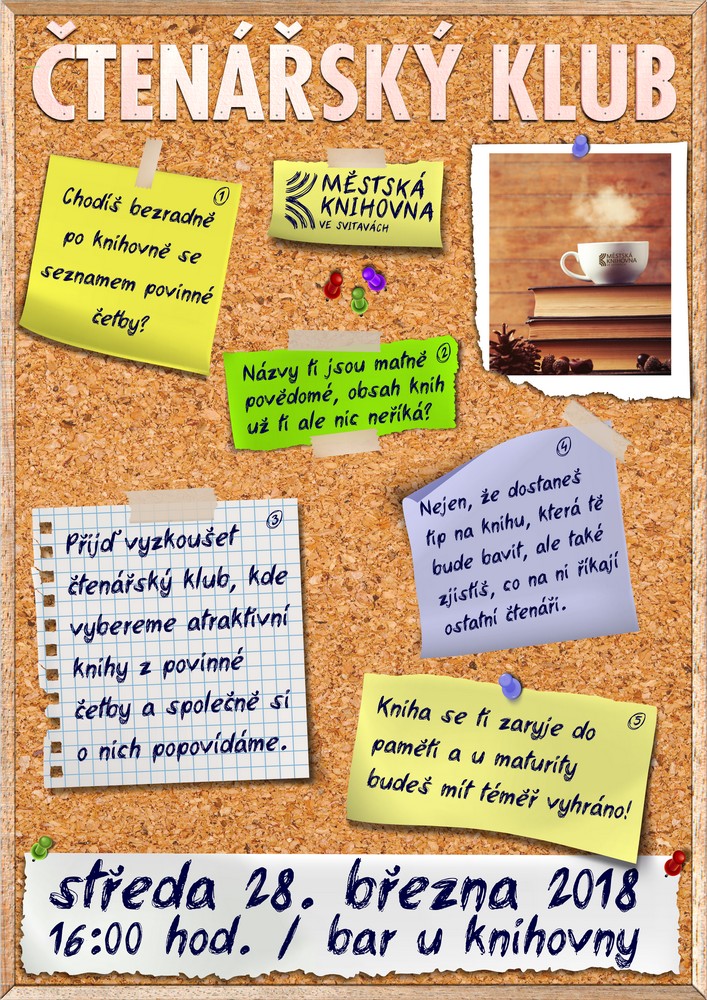 ČTENÁŘSKÝ KLUB
1
Chodíš bezradně
po knihovně se
seznamem povinné
četby?
MĚSTSKÁ
KNIHOVNA
VE SVITAVÁCH
MĚSTSKÁ
KNIHOVNA
2
Názvy ti jsou matně
povědomé, obsah knih
už ti ale nic neříká?
3
Přijď vyzkoušet
čtenářský klub, kde
vybereme atraktivní
knihy z povinné
četby a společně si
o nich popovídáme.
4
Nejen, že dostaneš
tip na knihu, která tě
bude bavit, ale také
zjistíš, co na ni říkají
ostatní čtenáři.
5
Kniha se ti zaryje do
paměti a u maturity
budeš mít téměř vyhráno!
středa 28. března 2018
16:00 hod. / bar u knihovny